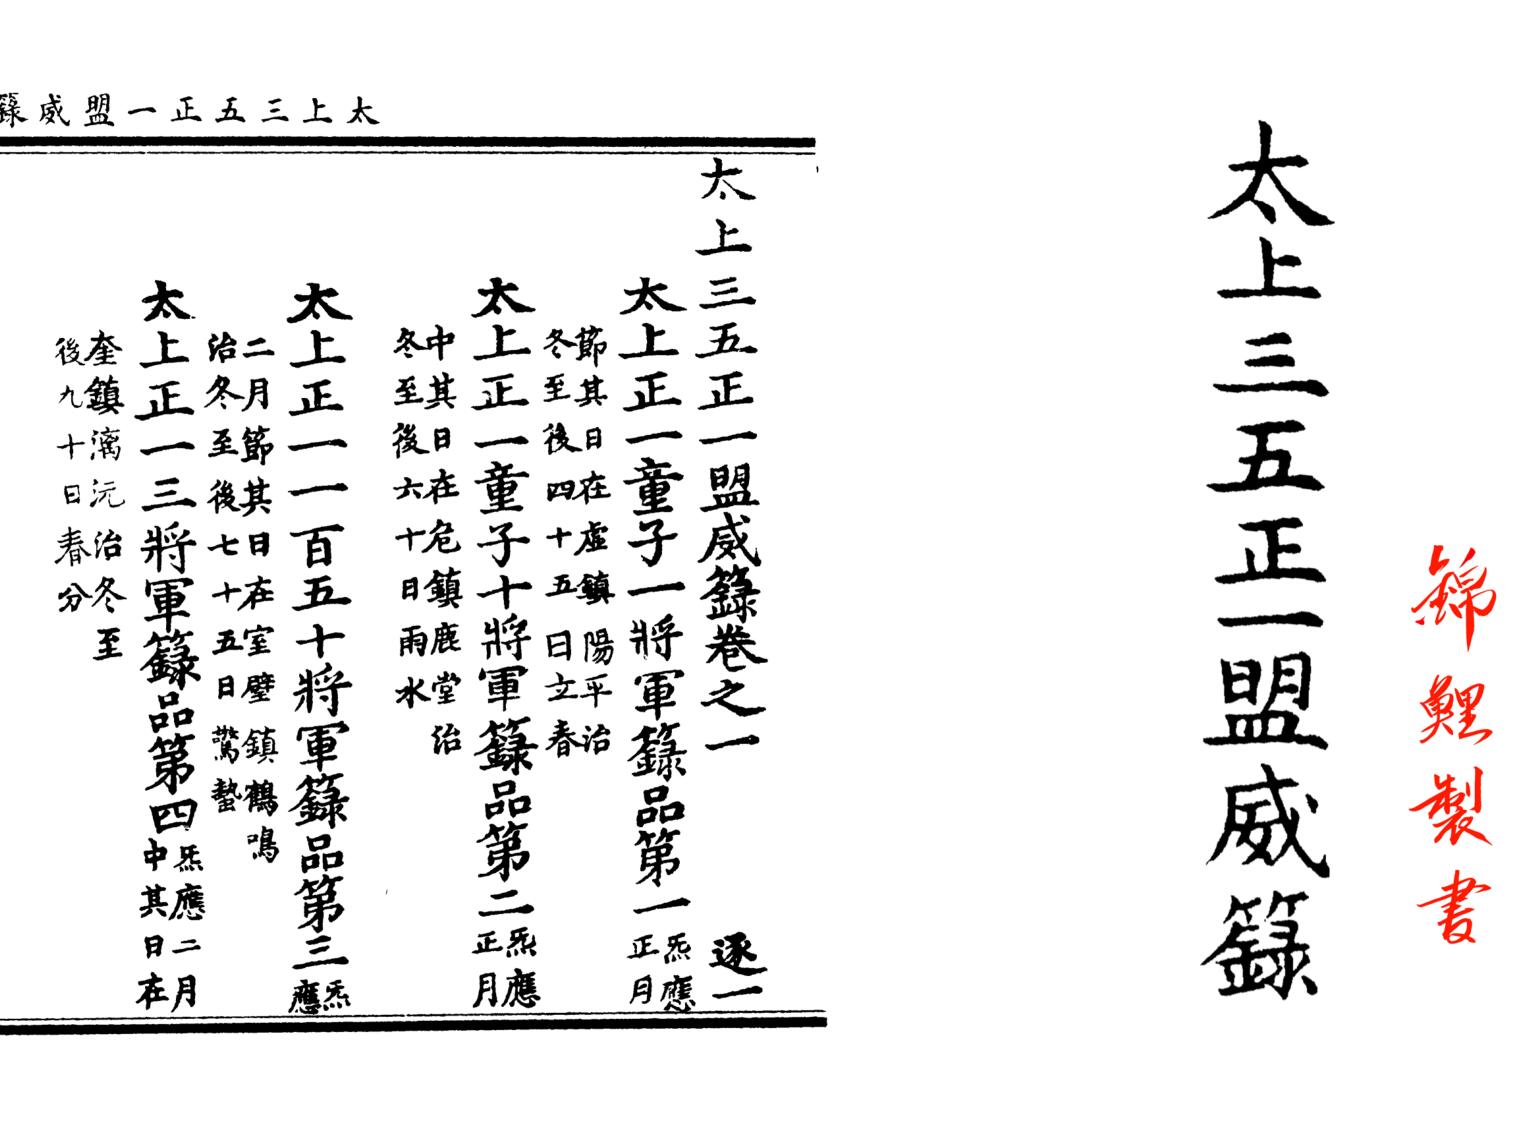 錦鯉製書
太上三五正一盟威籙
太上三五正一盟威籙
太上三五正一盟威籙卷之一 逐一
太上正一童子一將軍籙品第一 炁應正月
節其日在虛鎮陽平治
冬至後四十五日立春
太上正一童子十將軍籙品第二 炁應正月
中其日在危鎮鹿堂治
冬至後六十日雨水
太上正一一百五十將軍籙品第三 炁應
二月節其日在室壁鎮鶴鳴
治冬至後七十五日驚蟄
太上正一三將軍籙品第四 炁應二月中其日在
奎鎮漓沅治冬至
後九十日春分